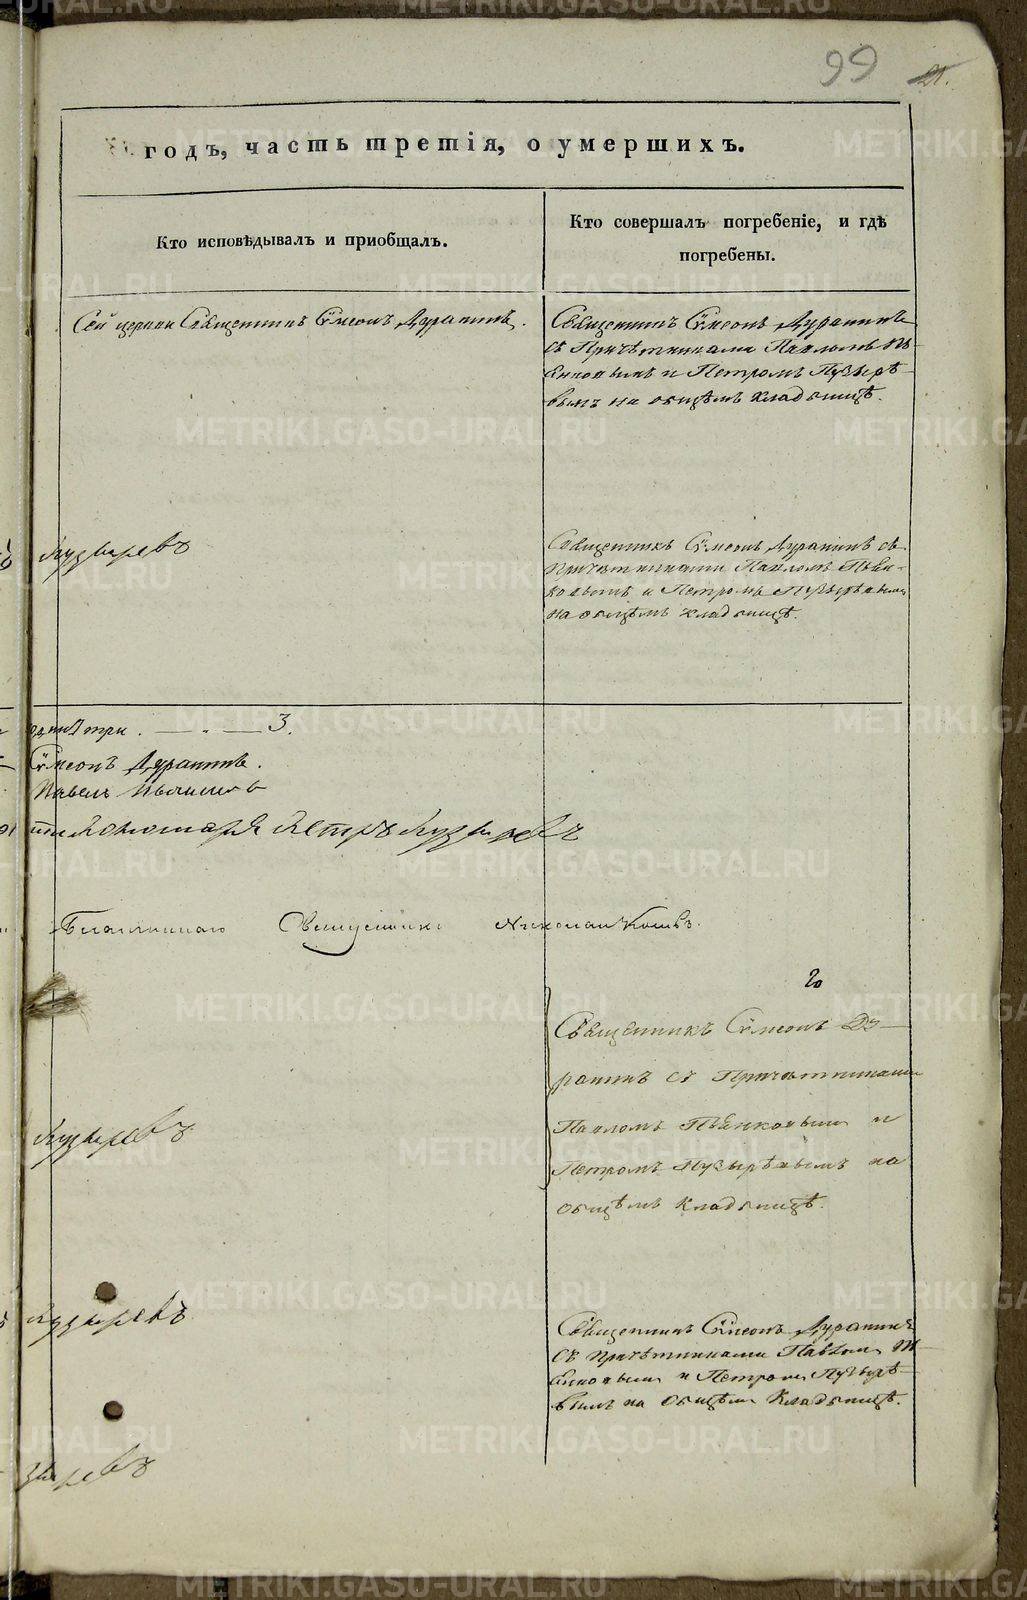 99 21.
годъ, часть третія, о умершихъ.
Кто исповѣдывалъ и приобщалъ.
Кто совершалъ погребеніе, и гдѣ
погребены.
Сей церкви Священникъ Сѵмеонъ Дурапинъ.
Священникъ Сѵмеонъ Дурапинъ
съ Причѣтниками Павломъ Пь-
янковымъ и Петромъ Пузырѣ-
вымъ на общемъ кладбищѣ.
Пузыревъ
Священникъ Сѵмеонъ Дурапинъ съ
Причетниками Павломъ Пьян-
ковымъ и Петромъ Пузырѣвымъ
на общемъ кладбищѣ.
три . — . — 3.
Сѵмеонъ Дурапинъ.
Павелъ Пьянковъ
пономарь Петръ Пузыревъ
Благочинный Священникъ Николай
20
Священникъ Сѵмеонъ Ду-
рапинъ съ Причетниками
Павломъ Пьянковымъ и
Петромъ Пузырѣвымъ на
общемъ кладбищѣ.
Пузыревъ
Пузыревъ
Священникъ Сѵмеонъ Дурапинъ
съ Причѣтниками Павломъ Пь-
янковымъ и Петромъ Пузырѣ-
вымъ на общемъ кладбищѣ.
зыревъ
METRIKI.GASO-URAL.RU